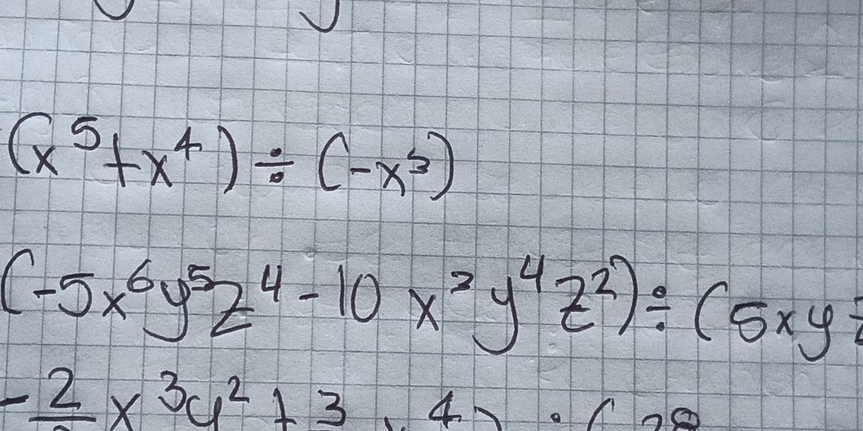 (x⁵+x⁴) ÷ (-x³)
(-5x⁶y⁵z⁴ - 10 x³ y⁴ z²) ÷ (5xy
- 2 x³y² + 3